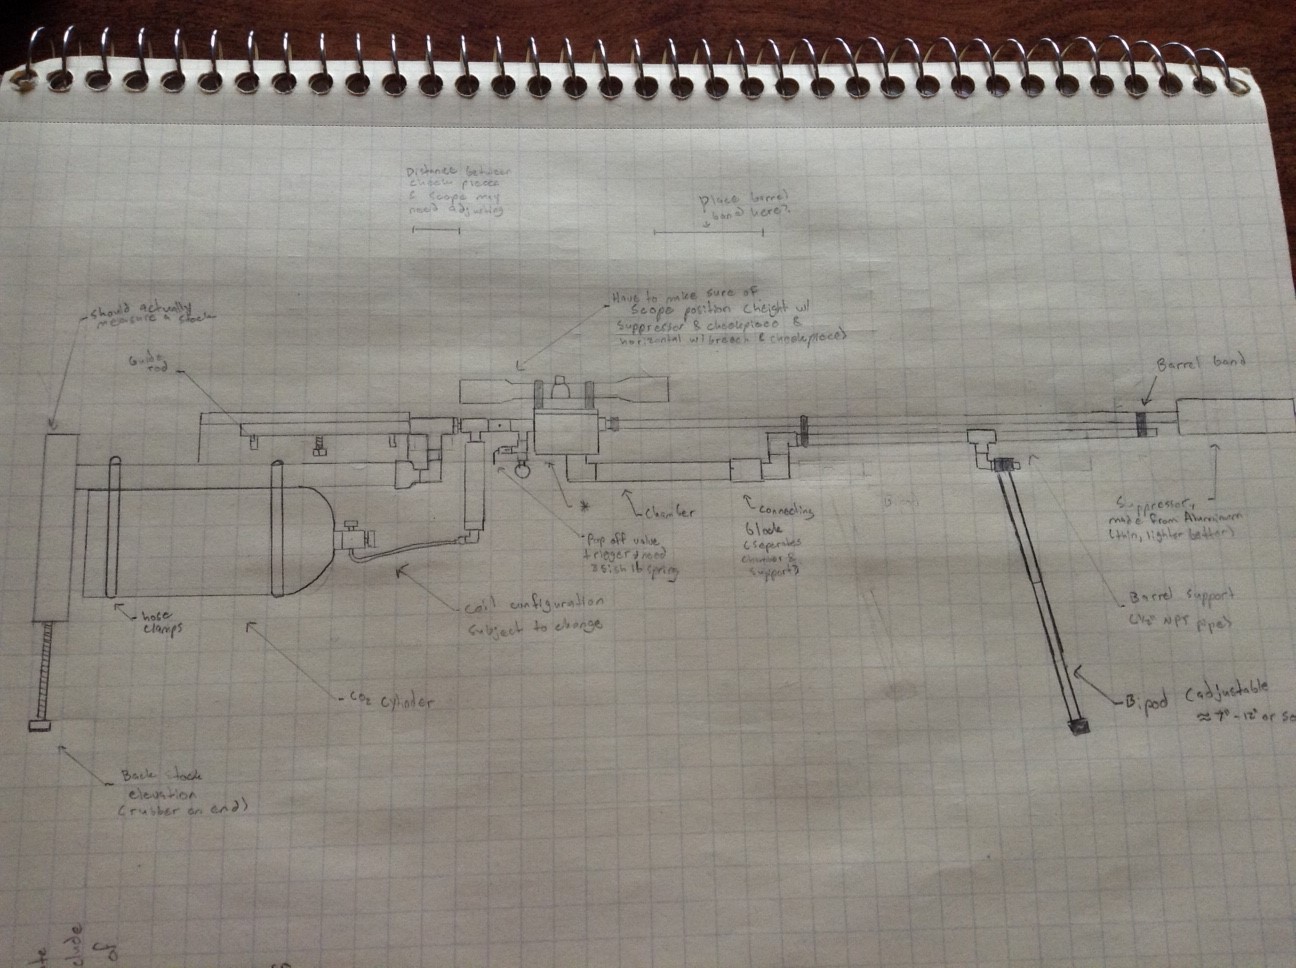 Distance between
cheek piece
& scope may
need adjusting
Place barrel
band here?
Should actually
measure a stock
Guide
rod
Have to make sure of
scope position (height w/
suppressor & cheekpiece &
horizontal w/ breech & cheekpiece)
Barrel band
*
Chamber
connecting
block
(separates
chamber &
support)
Pop off valve
trigger
spring
Suppressor,
made from Aluminum
(thin, lighter better)
hose
clamps
Coil configuration
subject to change
Barrel support
NPT pipe)
CO2 cylinder
Bipod (adjustable
≈ 9" - 12" or so
Back stock
elevation
(rubber on end)
clude
of